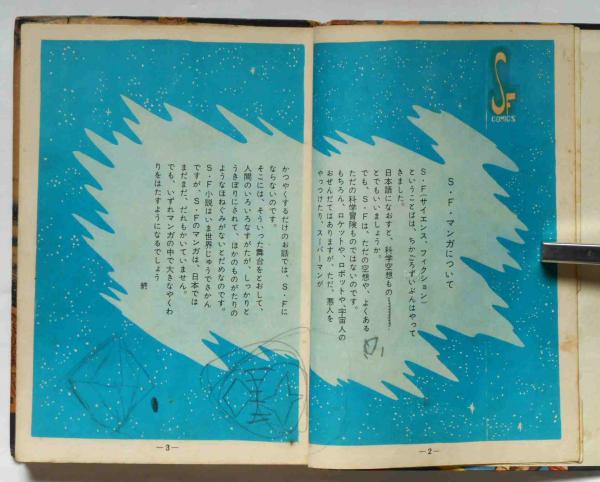 SF
COMICS
S・F・マンガについて
S・F(サイエンス、フィクション)
ということばは、ちかごろずいぶんはやって
きました。
日本語になおすと、科学空想もの………
とでもいいましょうか。
でも、S・Fは、ただの空想や、よくある
ただの科学冒険ものではないのです。
もちろん、ロケットや、ロボットや、宇宙人の
おぜんだてはありますが、ただ、悪人を
やっつけたり、スーパーマンが
—2—
かつやくするだけのお話では、S・Fに
ならないのです。
そこには、そういった舞台をとおして、
人間のいろいろなすがたが、しっかりと
うきぼりにされて、ほかのものがたりの
ようなほねぐみがないとだめなのです。
S・F小説はいま世界じゅうでさかん
ですが、S・Fのマンガは、日本では
まだまだ、だれもかいていません。
でも、いずれマンガの中で大きなやくわ
りをはたすようになるでしょう
終
—3—